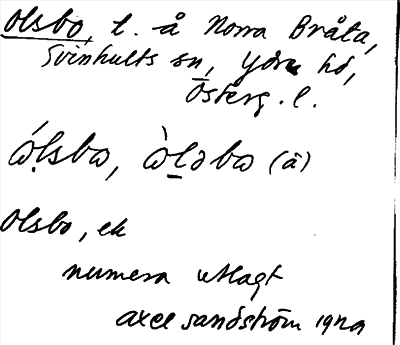 Olsbo, l. å Norra Bråta,
Svinhults sn, Ydre hd,
Österg. l.
ɷ́l̥sbɷ, ɷ̀l̠əbɷ (å)
Olsbo, ek
numera utlagt
Axel Sandström 1929